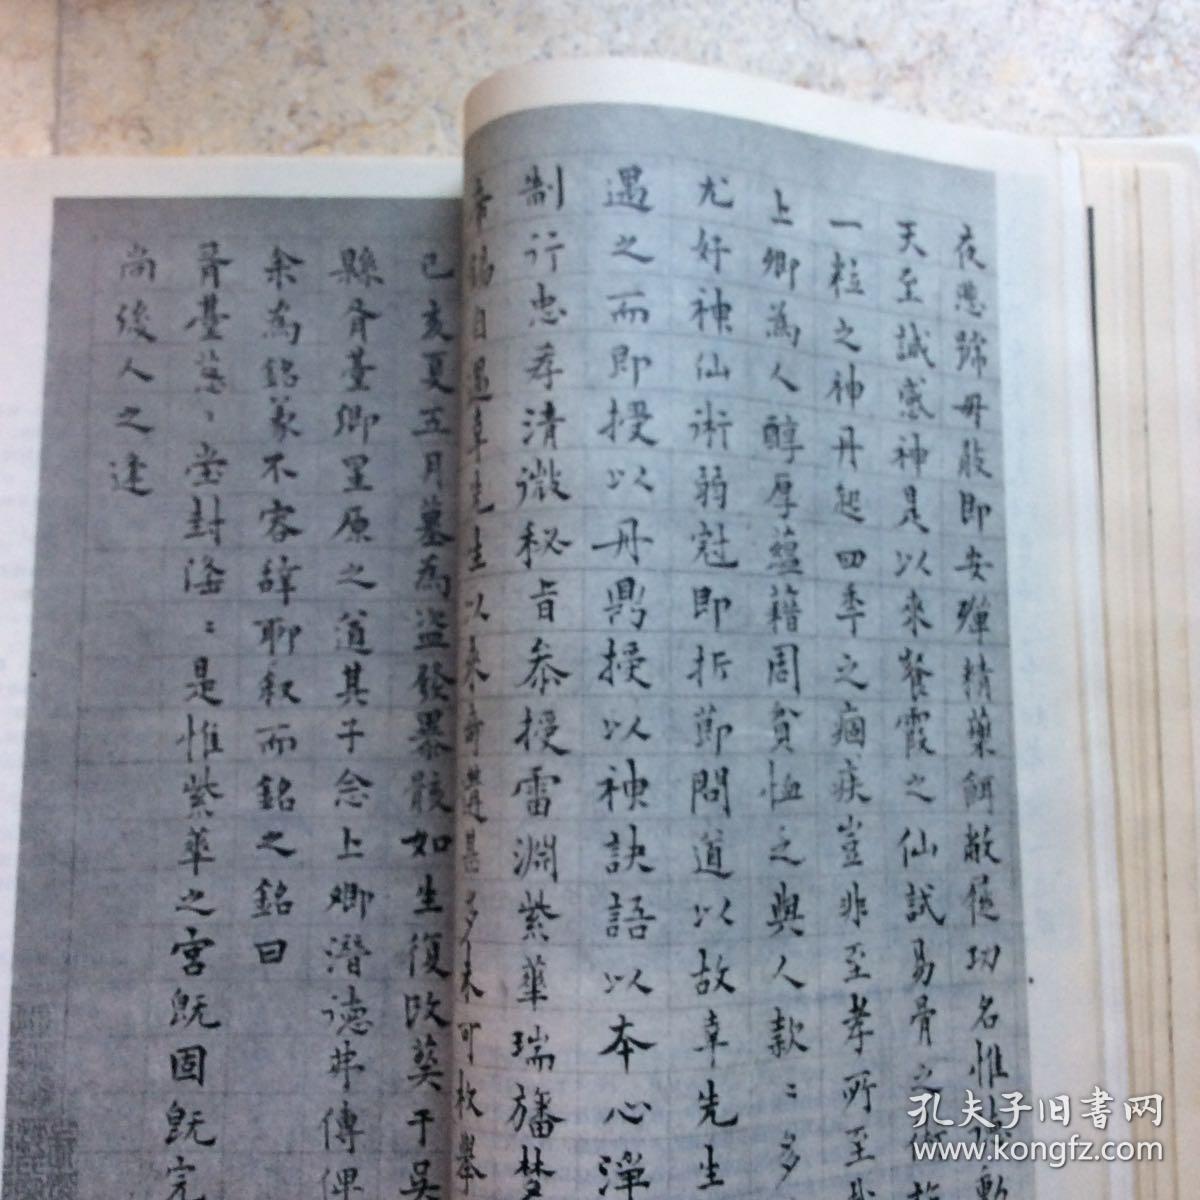 夜悲號母敀即安殫精藥餌敝屣功名惟
天至誠感神是以來餐霞之仙試易骨之
一粒之神丹起四季之痼疾豈非至孝所至
上卿為人醇厚蘊籍周貧恤之與人款〻多
尤好神仙術弱冠即折節問道以故章先生
遇之而即授以丹鼎授以神訣語以本心渾
制行忠孝清微秘旨參授雷淵紫華瑞旛
自遇章先生以來奇遘甚多未可枚舉
己亥夏五月墓為盜發暴骸如生復改葬于吳
縣胥臺鄉里原之道其子念上卿潛德弗傳俾
余為銘義不容辭聊叙而銘之銘曰
胥臺蔥〻堂封隆〻是惟紫華之宮既固既完
尚後人之逢
孔夫子旧书网
www.kongfz.com